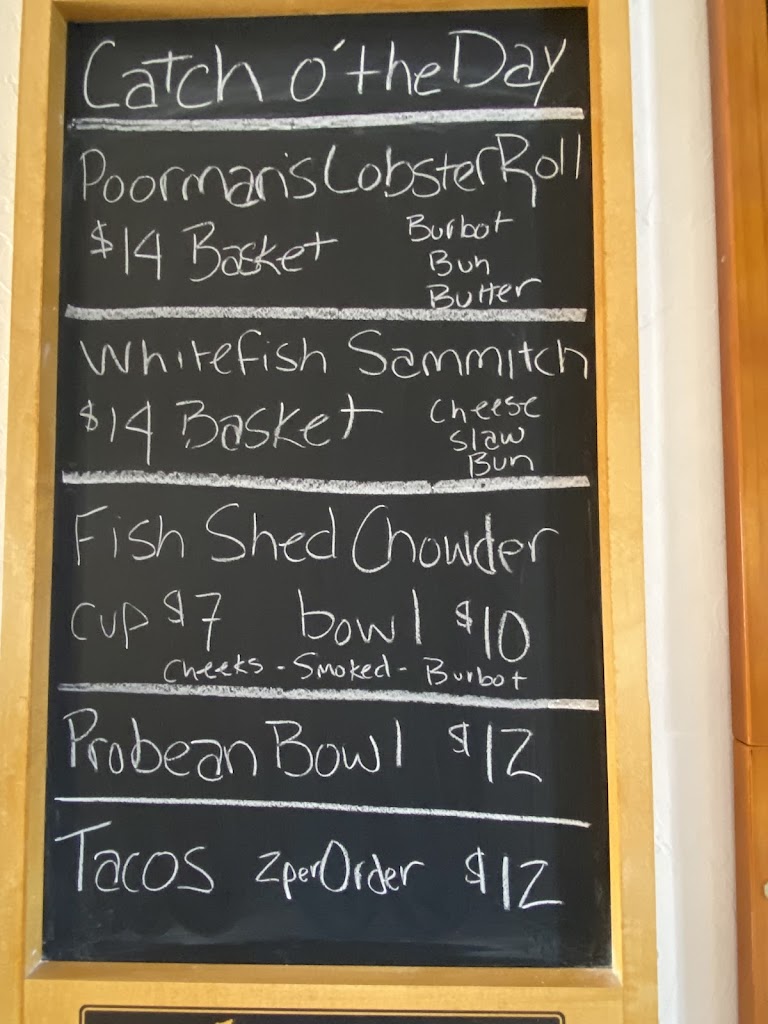 Catch o' the Day
Poorman's Lobster Roll
$14 Basket
Burbot
Bun
Butter
Whitefish Sammitch
$14 Basket
Cheese
Slaw
Bun
Fish Shed Chowder
Cup $7 bowl $10
Cheeks - Smoked - Burbot
Probean Bowl $12
Tacos 2 per Order $12